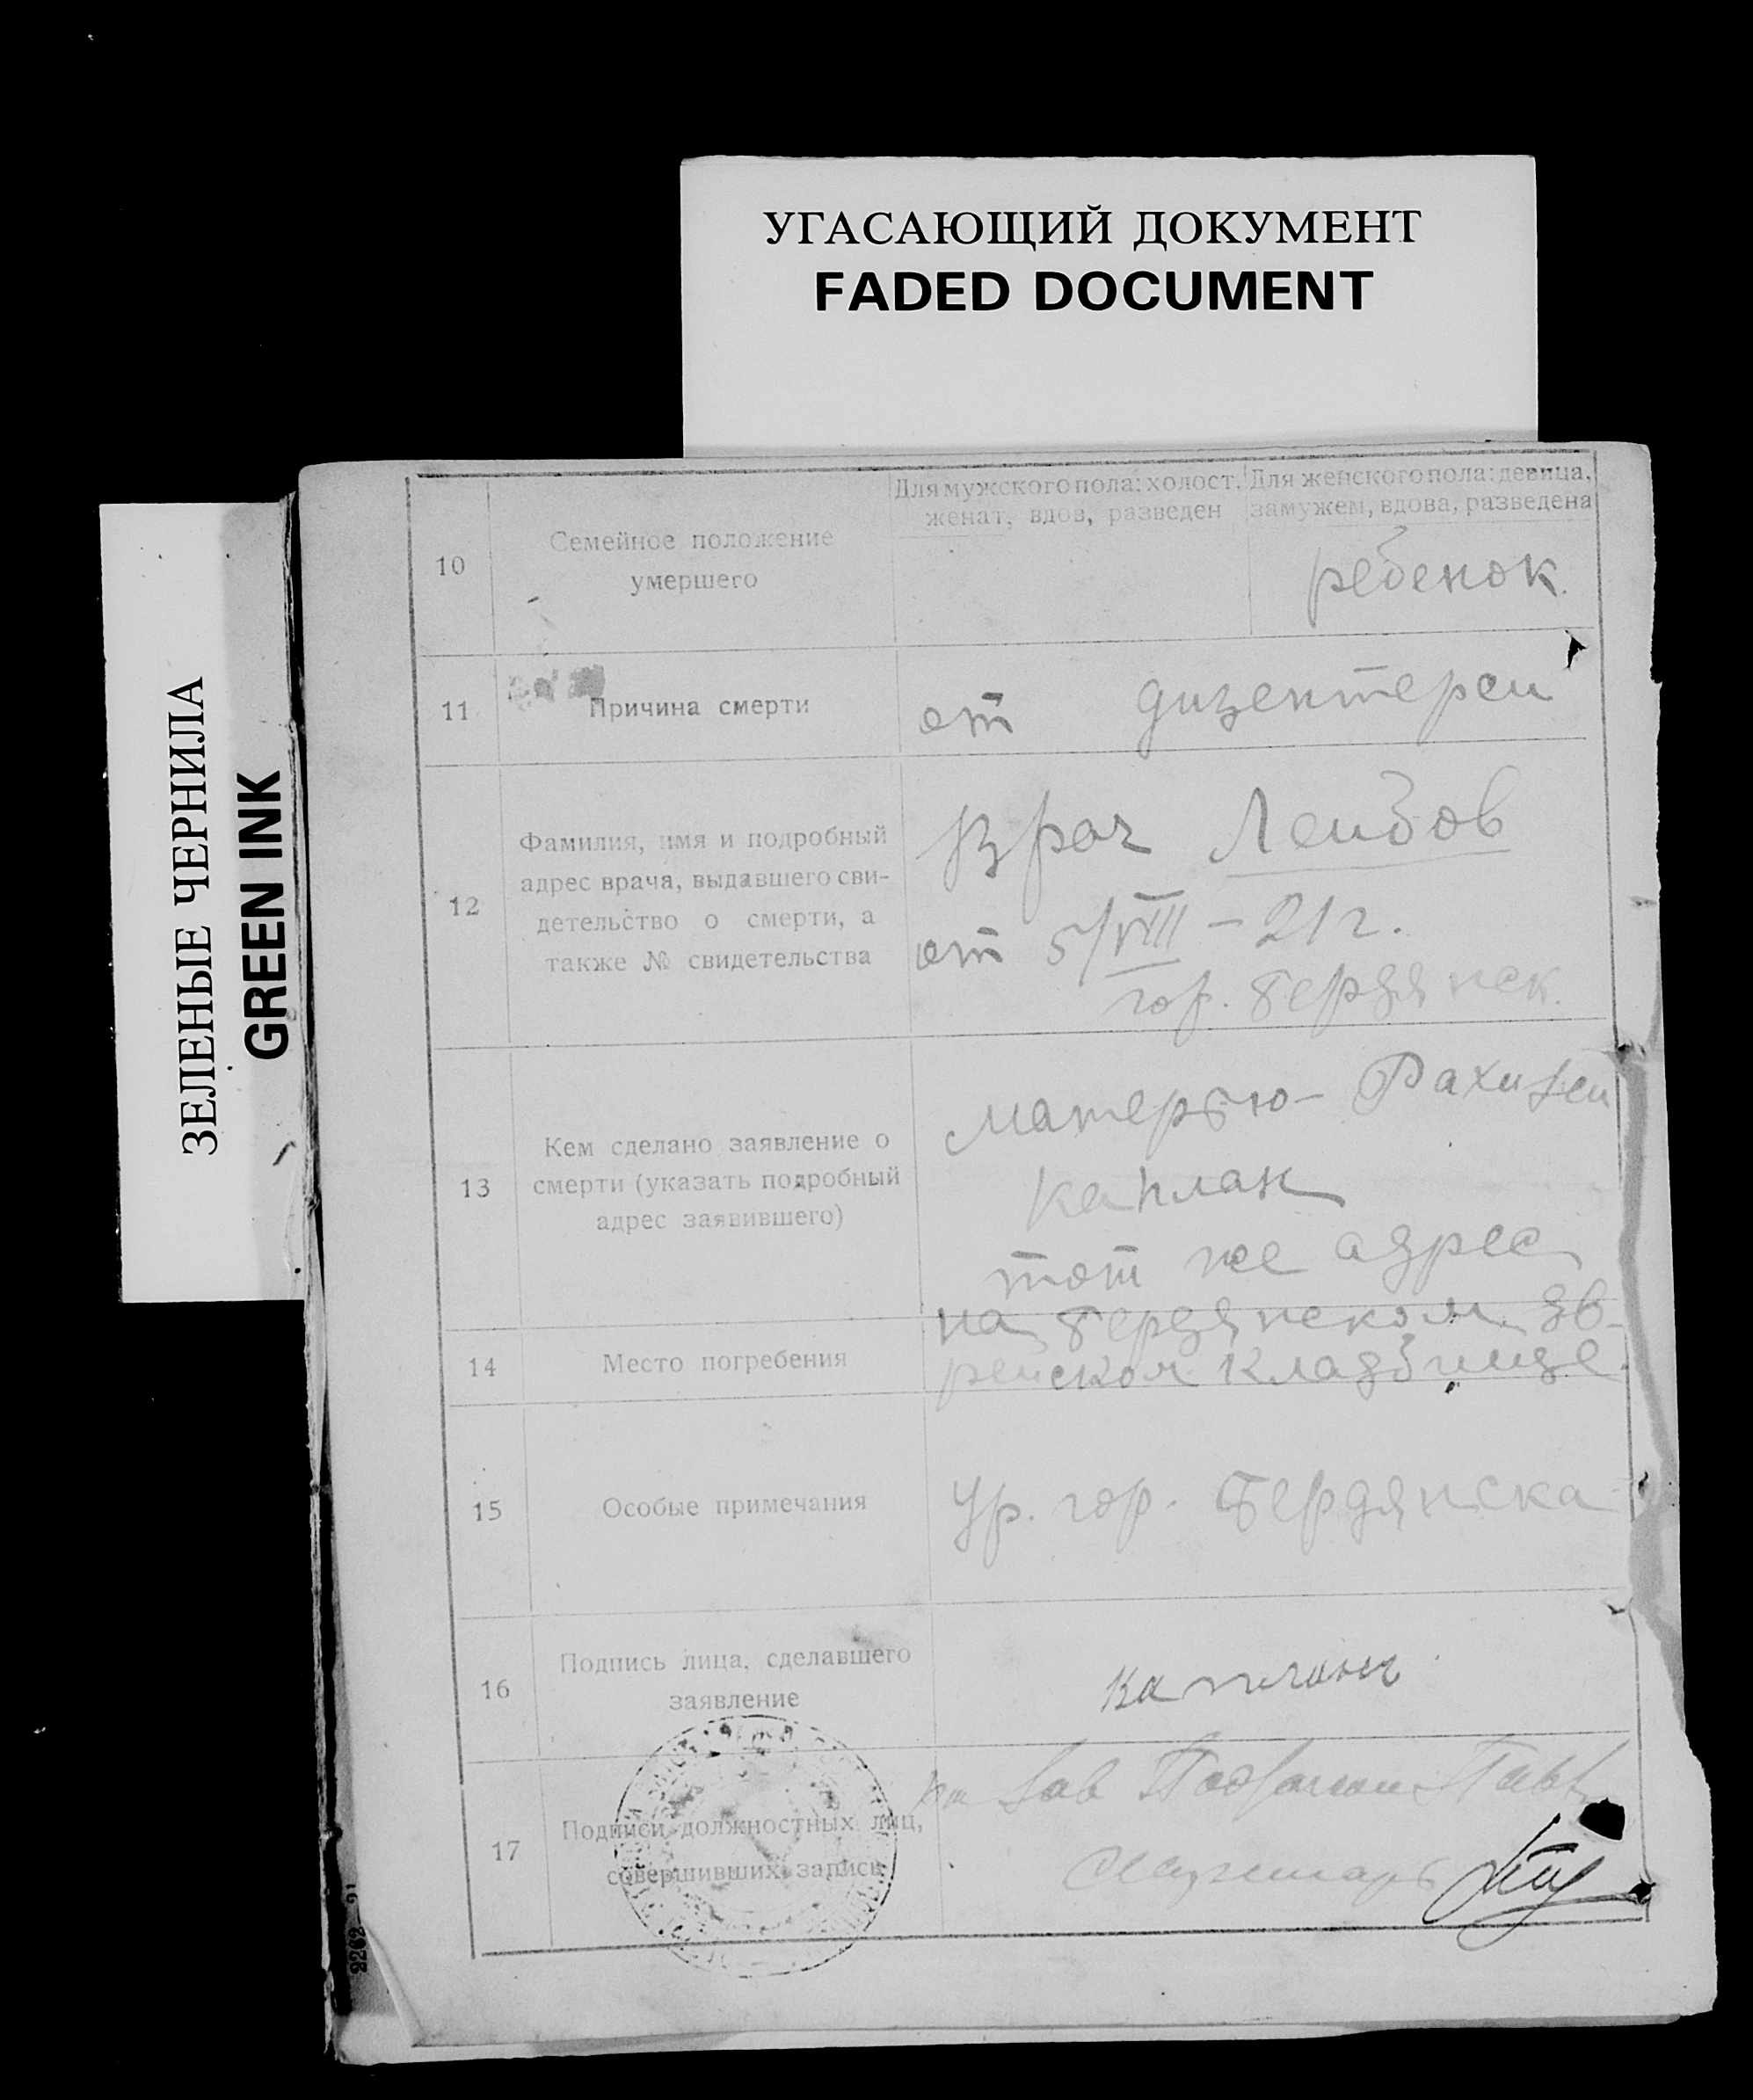 УГАСАЮЩИЙ ДОКУМЕНТ
FADED DOCUMENT
ЗЕЛЕНЫЕ ЧЕРНИЛА
GREEN INK
10
Семейное положение
умершего
Для мужского пола: холост,
женат, вдов, разведен
Для женского пола: девица,
замужем, вдова, разведена
ребенок.
11
Причина смерти
от дизентереи
12
Фамилия, имя и подробный
адрес врача, выдавшего сви-
детельство о смерти, а
также № свидетельства
Врач Лейбов
от 5/VIII - 21 г.
гор. Бердянск.
13
Кем сделано заявление о
смерти (указать подробный
адрес заявившего)
матерью - Рахилей
Каплан
тот же адрес
14
Место погребения
на Бердянском Ев-
рейском кладбище.
15
Особые примечания
Ур. гор. Бердянска
16
Подпись лица, сделавшего
заявление
Каплан
17
Подписи должностных лиц,
совершивших запись
Зав
2262 21